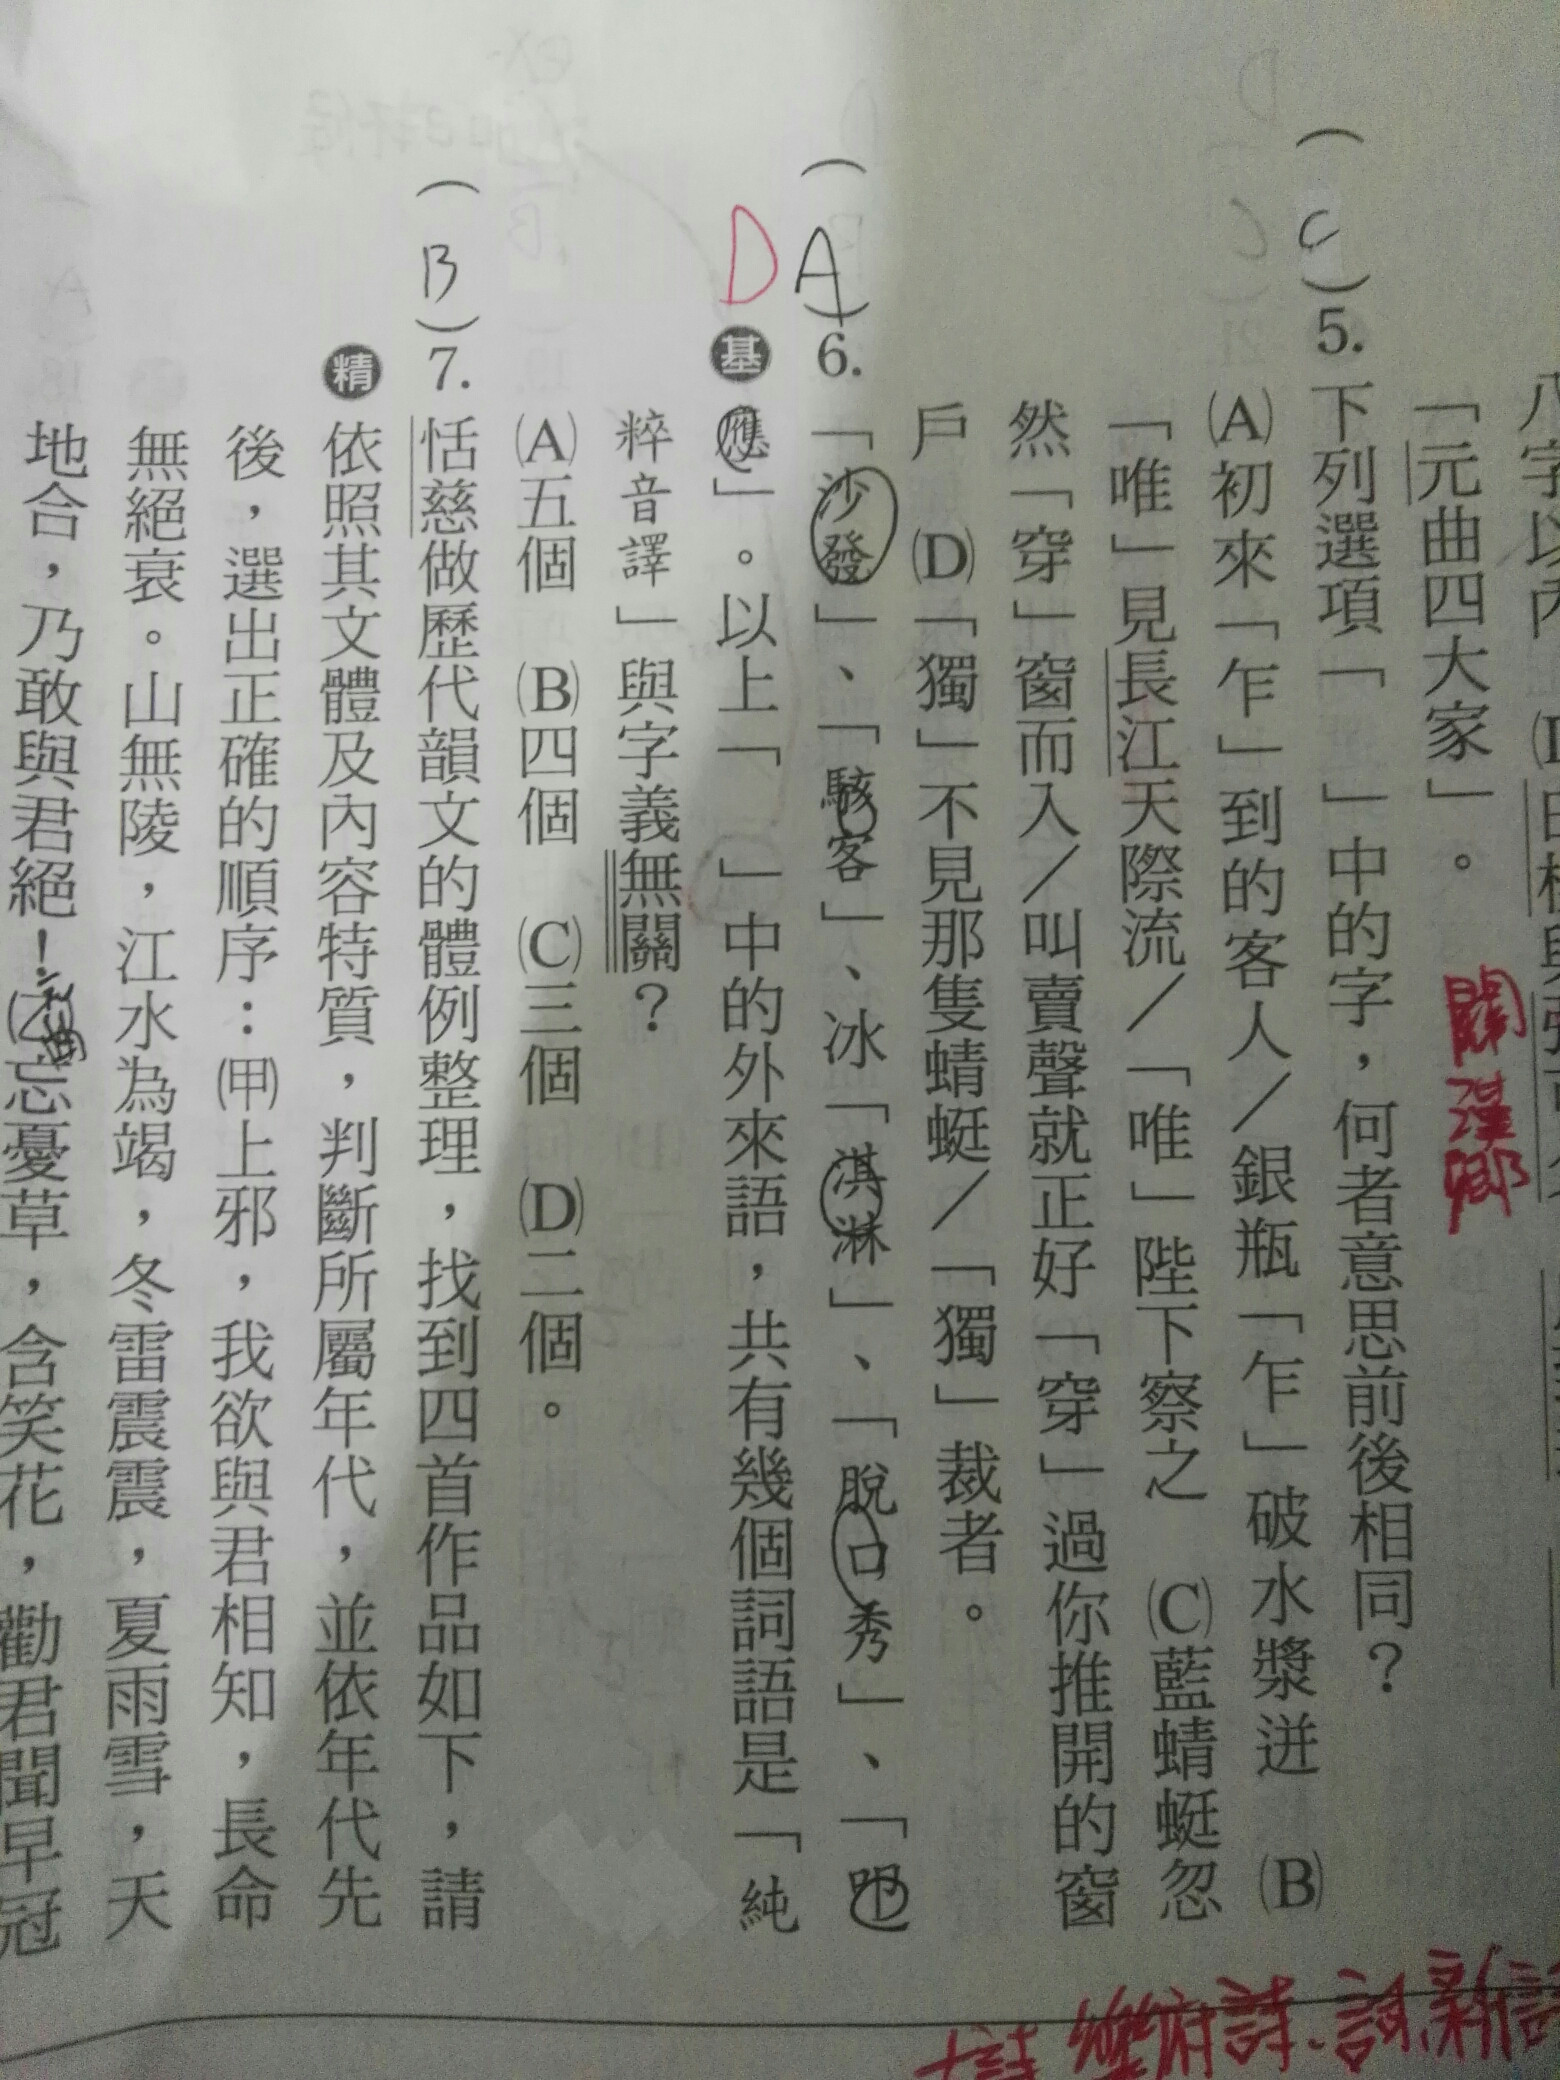 八字以內
「元曲四大家」。
關漢卿
(C)5.下列選項「　」中的字，何者意思前後相同？
(A)初來「乍」到的客人／銀瓶「乍」破水漿迸　(B)
「唯」見長江天際流／「唯」陛下察之　(C)藍蜻蜓忽
然「穿」窗而入／叫賣聲就正好「穿」過你推開的窗
戶　(D)「獨」不見那隻蜻蜓／「獨」裁者。
(A)6.「沙發」、「駭客」、冰「淇淋」、「脫口秀」、「呼
D
基應」。以上「　」中的外來語，共有幾個詞語是「純
粹音譯」與字義無關？
(A)五個　(B)四個　(C)三個　(D)二個。
(B)7.恬慈做歷代韻文的體例整理，找到四首作品如下，請
精依照其文體及內容特質，判斷所屬年代，並依年代先
後，選出正確的順序：(甲)上邪，我欲與君相知，長命
無絕衰。山無陵，江水為竭，冬雷震震，夏雨雪，天
地合，乃敢與君絕！(乙)忘憂草，含笑花，勸君聞早冠
詩 樂府詩、詞、新詩